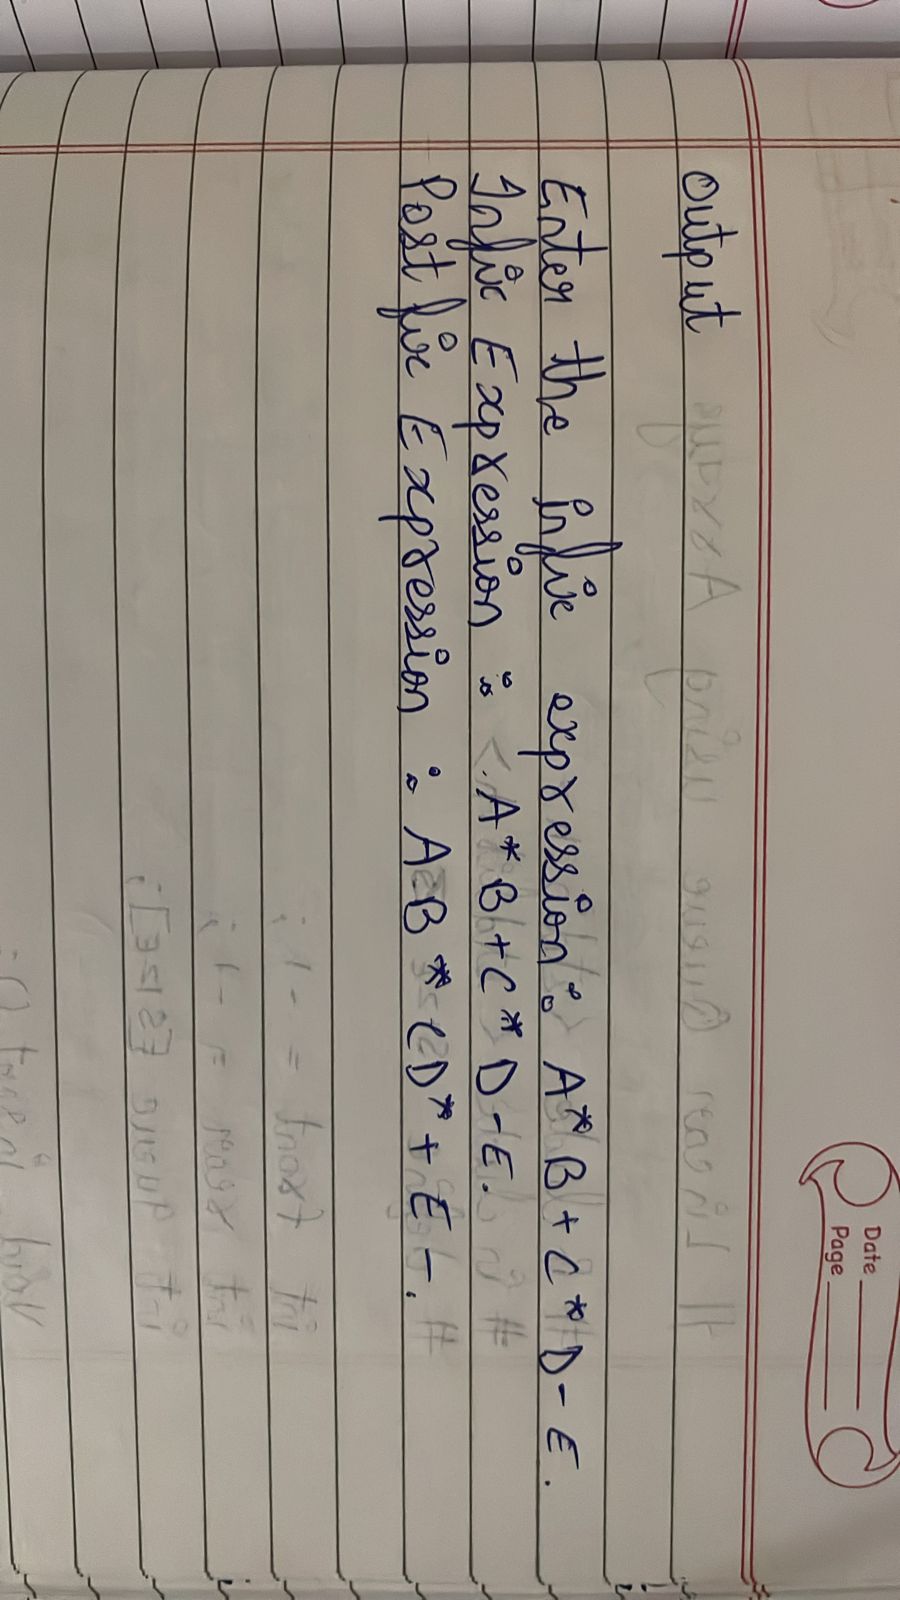 Date
Page
Output
Enter the infix expression: A*B+C*D-E.
Infix Expression : A*B+C*D-E.
Postfix Expression : AB*CD*+E-.